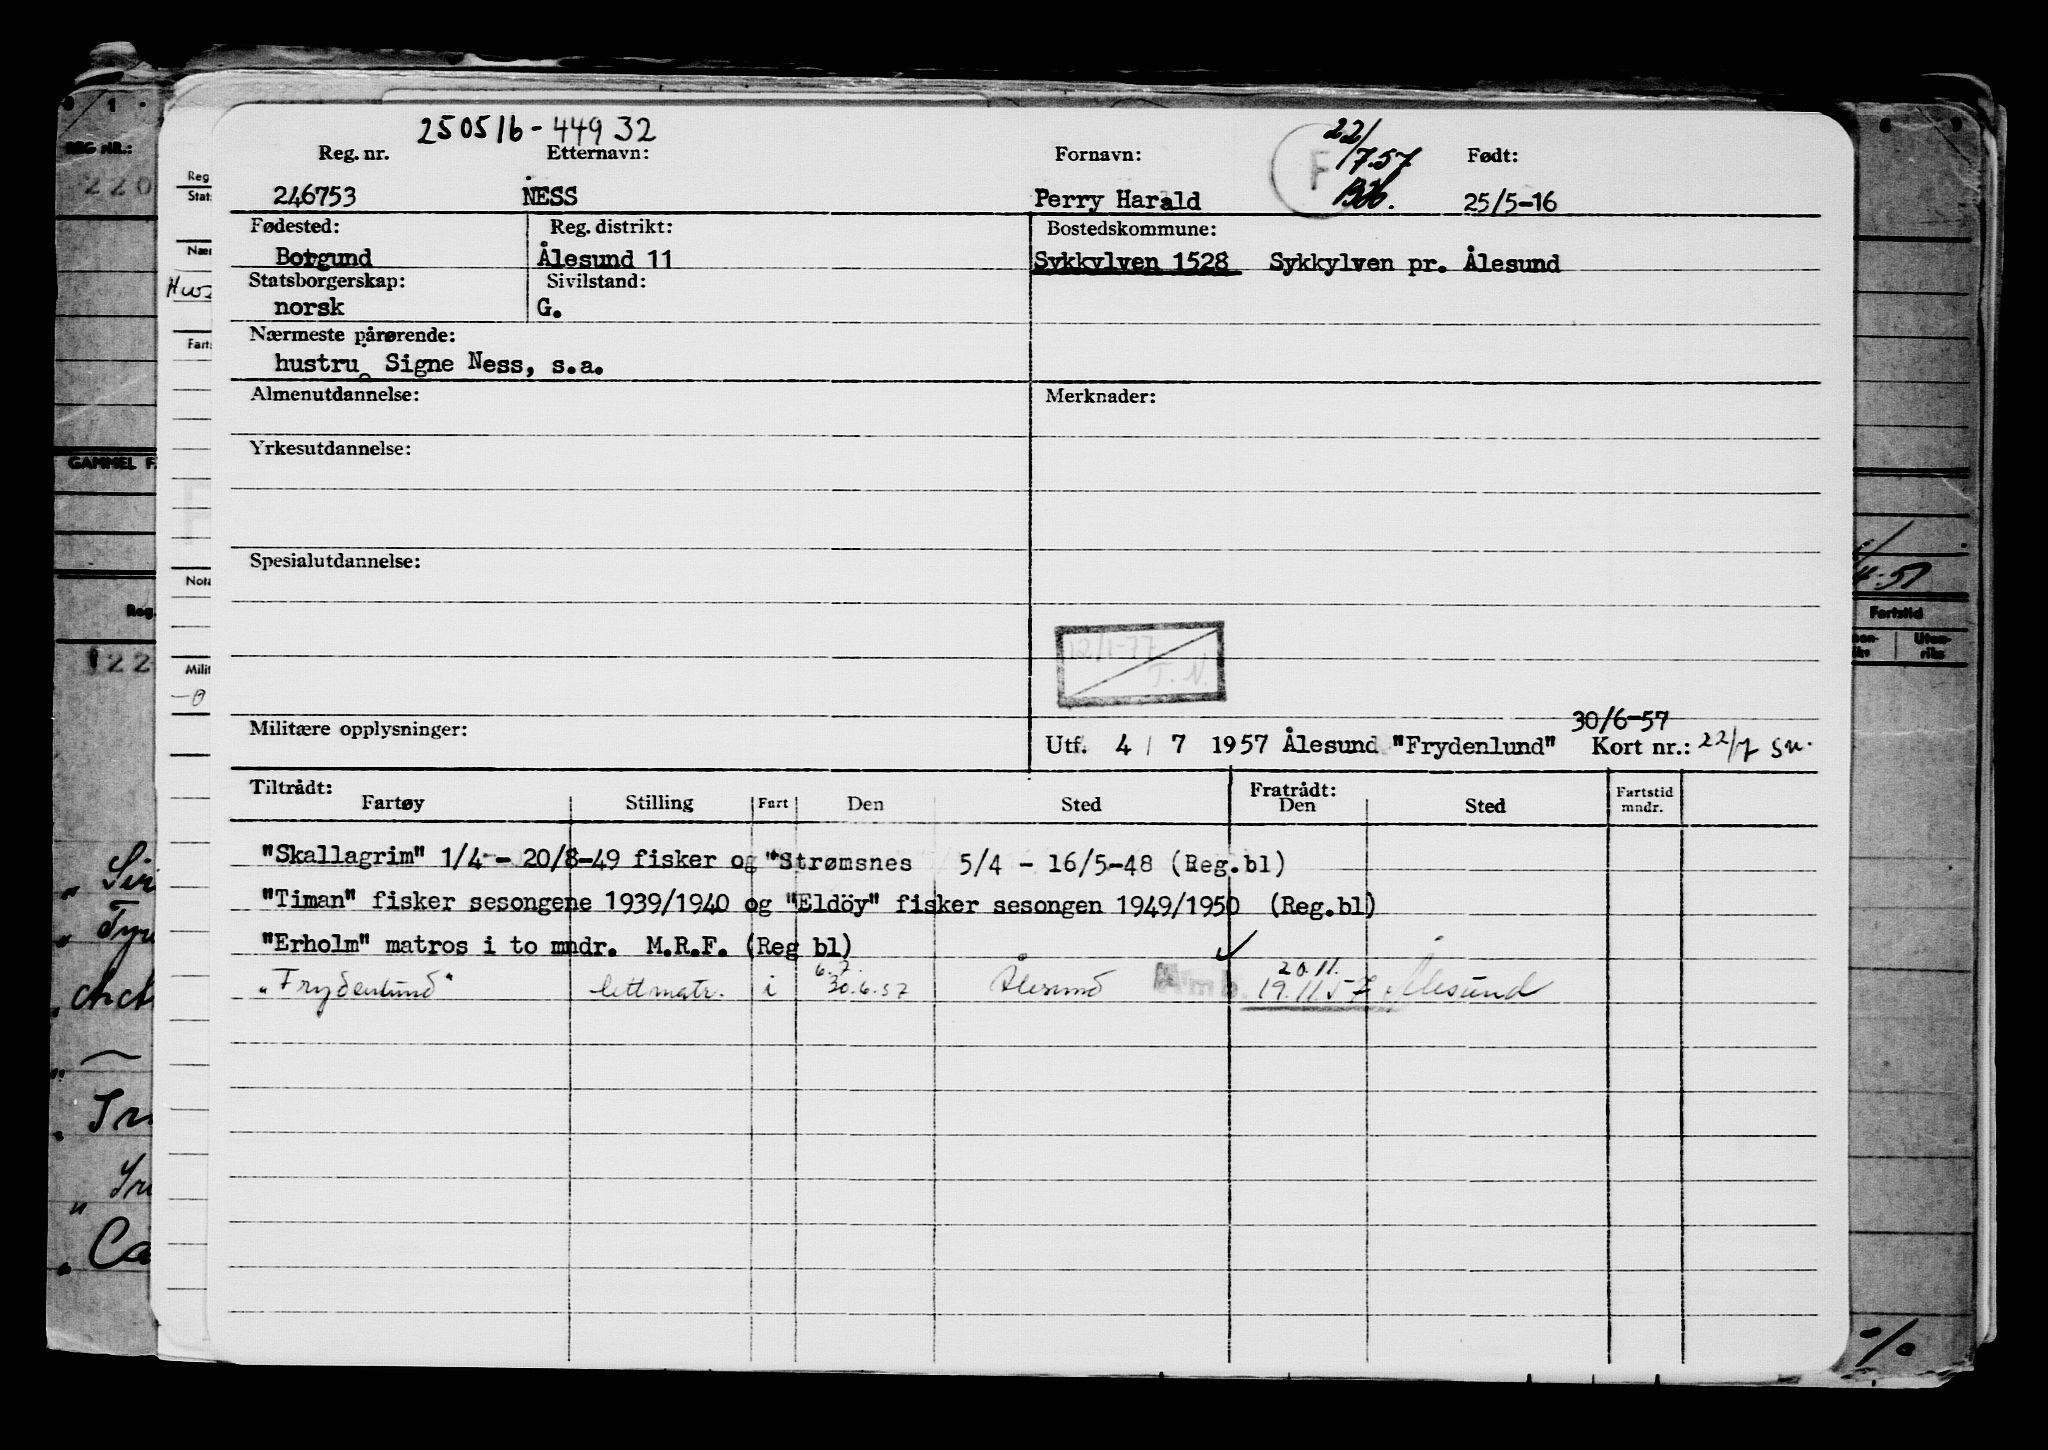 250516-44932
Reg. nr. Etternavn: Fornavn: Født:
F 22/7.57
246753 NESS Perry Harald 25/5-16
Fødested: Reg. distrikt: Bostedskommune:
Borgund Ålesund 11 Sykkylven 1528 Sykkylven pr. Ålesund
Statsborgerskap: Sivilstand:
norsk G.
Nærmeste pårørende:
hustru Signe Ness, s.a.
Almenutdannelse: Merknader:
Yrkesutdannelse:
Spesialutdannelse:
12/1-77
T. N.
30/6-57
Militære opplysninger: Utf. 4 / 7 1957 Ålesund "Frydenlund" Kort nr.: 22/7 sn.
Tiltrådt: Fratrådt:
Fartøy Stilling Fart Den Sted Den Sted Fartstid mndr.
"Skallagrim" 1/4 - 20/8-49 fisker og "Strømsnes 5/4 - 16/5-48 (Reg.bl)
"Timan" fisker sesongene 1939/1940 og "Eldöy" fisker sesongen 1949/1950 (Reg.bl)
"Erholm" matros i to mndr. M.R.F. (Reg bl)
6.7. 20.11.
"Frydenlund" lettmatr. i 30.6.57 Ålesund mb. 19.11.57 Ålesund
REG NR.:
220
Reg
Stat
Nær
Farts
GAMMEL F.
Nota
Reg.
22
Milit
Fartstid
Uten-
riks